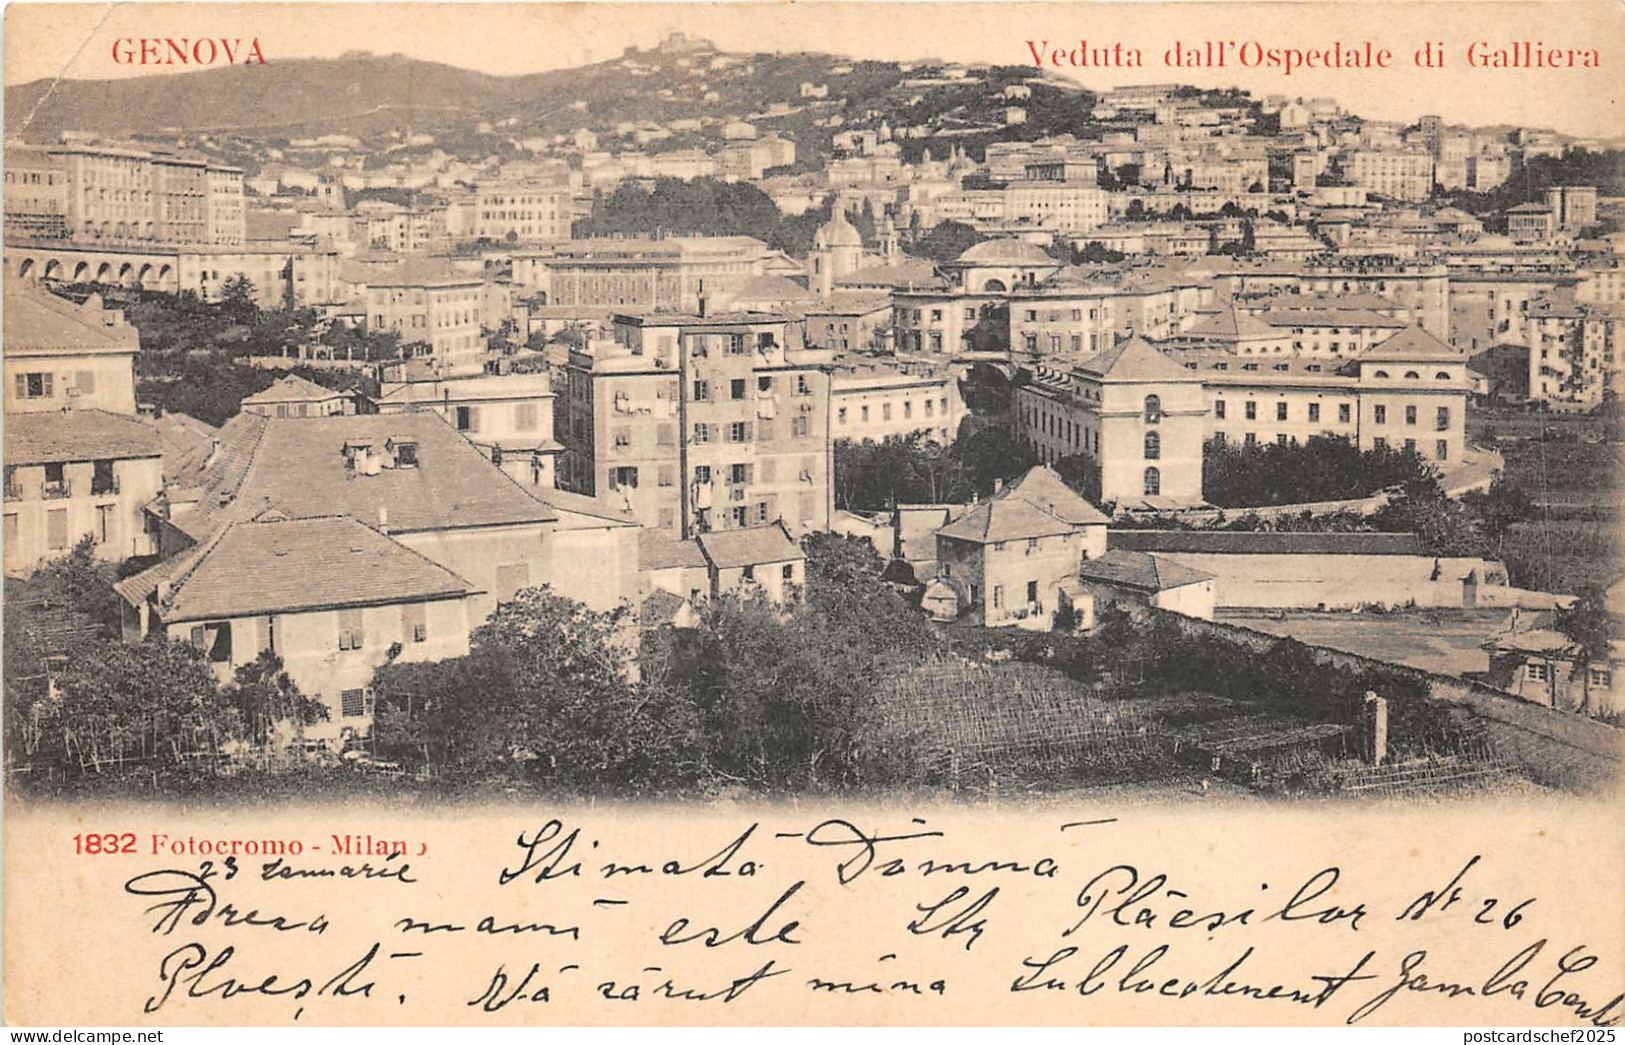 GENOVA
Veduta dall'Ospedale di Galliera
1832 Fotocromo - Milano
23 Ianuarie
Stimată Dómnă
Adresa mamii este Str Plăeșilor Nr 26
Ploești. Vă sărut mâna Sublocotenent
postcardschef2025